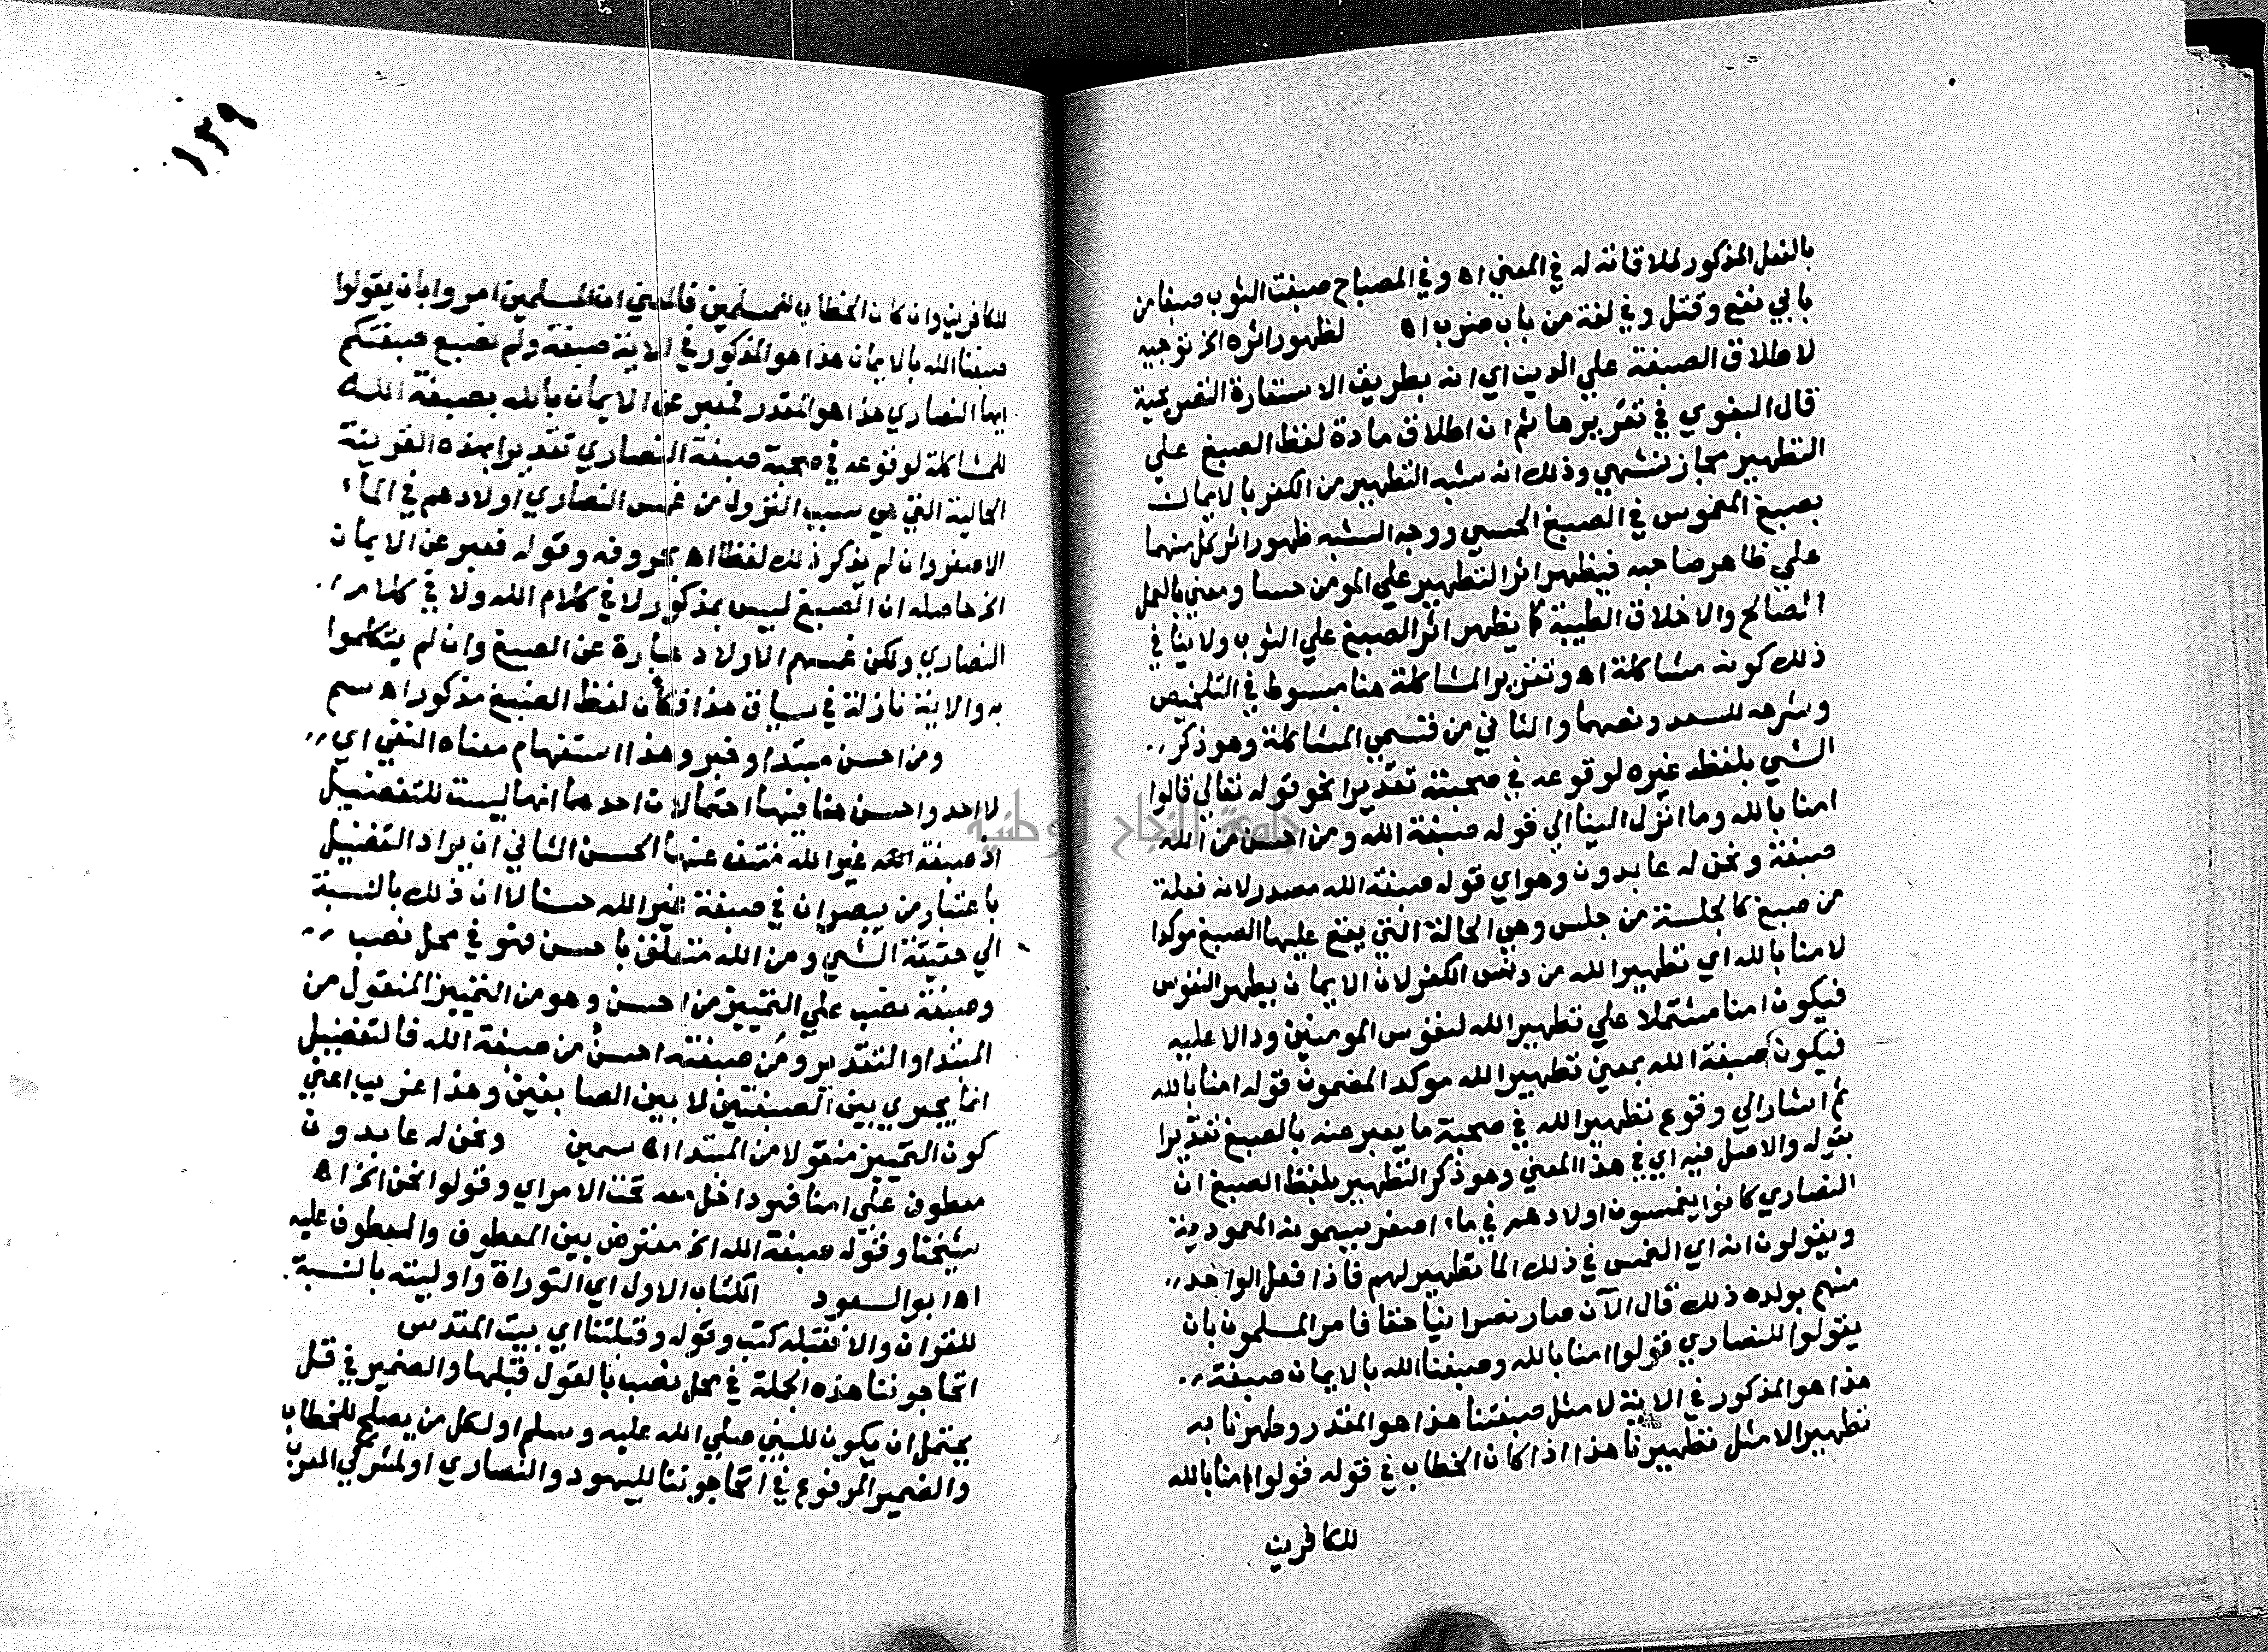 بالفعل المذكور لملاقاته له في المعني اه وفي المصباح صبغت الثوب صبغا من
بابي نفع وقتل وفي لغة من باب ضرب اه لظهور اثره الخ توجيه
لاطلاق الصبغة علي الدين اي انه بطريق الاستعارة التصريحية
قال البغوي في تقريرها ثم ان اطلاق مادة لفظ الصبغ علي
التطهير مجاز تشبيهي وذلك انه شبه التطهير من الكفر بالايمان
بصبغ المغموس في الصبغ الحسي ووجه الشبه ظهور اثر كل منهما
علي ظاهر صاحبه فيظهر اثر التطهير علي المومن حسا ومعني بالعمل
الصالح والاخلاق الطيبة كما يظهر اثر الصبغ علي الثوب ولا ينافي
ذلك كونه مشاكلة اه وتقرير المشاكلة هنا مبسوط في التلخيص
وشرحه للسعد ونصهما والثاني من قسمي المشاكلة وهو ذكر
الشي بلفظ غيره لوقوعه في صحبته تقديرا نحو قوله تعالي قالوا
امنا بالله وما انزل الينا الي قوله صبغة الله ومن احسن من الله
صبغة ونحن له عابدون وهو اي قوله صبغة الله مصدر لانه فعلة
من صبغ كالجلسة من جلس وهي الحالة التي يقع عليها الصبغ موكدا
لامنا بالله اي تطهير الله من دنس الكفر لان الايمان يطهر النفوس
فيكون امنا مشتملا علي تطهير الله لنفوس المومنين ودالا عليه
فيكون صبغة الله بمعني تطهير الله موكدا لمضمون قوله امنا بالله
ثم اشار الي وقوع تطهير الله في صحبة ما يعبر عنه بالصبغ تقديرا
بقوله والاصل فيه اي في هذا المعني وهو ذكر التطهير بلفظ الصبغ ان
النصاري كانوا يغمسون اولادهم في ماء اصفر يسمونه المعمودية
ويقولون انه اي الغمس في ذلك الما تطهير لهم فاذا فعل الواحد
منهم بولده ذلك قال الآن صار نصرانيا حقا فامر المسلمون بان
يقولوا للنصاري قولوا امنا بالله وصبغنا الله بالايمان صبغة
هذا هو المذكور في الاية لا مثل صبغتنا هذا هو المقدر وطهرنا به
تطهيرا لا مثل تطهيرنا هذا اذا كان الخطاب في قوله قولوا امنا بالله
للكافرين
١٢٩
للكافرين وان كان الخطاب للمسلمين فالمعني ان المسلمين امروا بان يقولوا
صبغنا الله بالايمان هذا هو المذكور في الاية صبغة ولم نصبغ صبغتكم
ايها النصاري هذا هو المقدر فعبر عن الايمان بالله بصبغة الله
للمشاكلة لوقوعه في صحبة صبغة النصاري تقديرا بهذه القرينة
الحالية التي هي سبب النزول من غمس النصاري اولادهم في الماء
الاصفر وان لم يذكر ذلك لفظا اه بحروفه وقوله فعبر عن الايمان
الخ حاصله ان الصبغ ليس بمذكور لا في كلام الله ولا في كلام
النصاري ولكن غمسهم الاولاد عبارة عن الصبغ وان لم يتكلموا
به والاية نازلة في سياق هذا فكأن لفظ الصبغ مذكور اه سم
ومن احسن مبتدا وخبر وهذا استفهام معناه النفي اي
لا احد واحسن هنا فيها احتمالان احدهما انها ليست للتفضيل
اذ صبغة غير الله منتف عنها الحسن الثاني ان يراد التفضيل
باعتبار من يبصر ان في صبغة غير الله حسنا لا ان ذلك بالنسبة
الي حقيقة الشي ومن الله متعلق باحسن فهو في محل نصب
وصبغة نصب علي التمييز من احسن وهو من التمييز المنقول من
المبتدا والتقدير ومن صبغته احسن من صبغة الله فالتفضيل
انما يجري بين الصبغتين لا بين الصابغين وهذا غريب اعني
كون التمييز منقولا من المبتدا اه سمين ونحن له عابدون
معطوف علي امنا فهو داخل معه تحت الامر اي وقولوا نحن الخ اه
شيخنا وقوله صبغة الله الخ معترض بين المعطوف والمعطوف عليه
اه ابو السعود الكتاب الاول اي التوراة واوليته بالنسبة
للقران والا فقبله كتب وقوله وقبلتنا اي بيت المقدس
اتحاجوننا هذه الجملة في محل نصب بالقول قبلها والضمير في قل
يحتمل ان يكون للنبي صلي الله عليه وسلم او لكل من يصلح للخطاب
والضمير المرفوع في اتحاجوننا لليهود والنصاري او لمشركي العرب
جامعة النجاح الوطنية